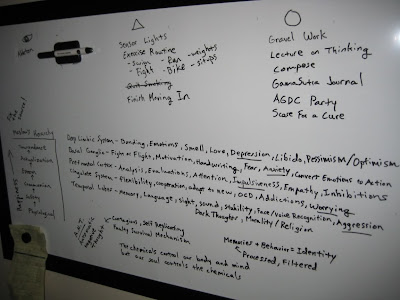 Sensor Lights
Exercise Routine
- Swim - Run - Weights
- Fight - Bike - Sit-ups
Quit Smoking
Finish Moving In
Gravel Work
Lecture on Thinking
Compose
GamaSutra Journal
AGDC Party
Score for a Cure
Maslow's Hierarchy
Transcendence
Actualization
Esteem
Safety
Physiological
Deep Limbic System - Bonding, Emotions, Smell, Love, Depression, Libido, Pessimism/Optimism
Basal Ganglia - Fight or Flight, Motivation, Handwriting, Fear, Anxiety, Convert Emotions to Action
Prefrontal Cortex - Analysis, Evaluations, Attention, Impulsiveness, Empathy, Inhibitions
Cingulate System - Flexibility, cooperation, adapt to new, OCD, Addictions, Worrying
Temporal Lobes - Memory, Language, sight, sound, Stability, Face/Voice Recognition, Aggression
Dark Thoughts, Morality/Religion
A.N.T.
Automatic
Negative
Thought
Contagious, Self Replicating
Faulty Survival Mechanism
Memories + Behavior = Identity
Processed, Filtered
The chemicals control our body and mind
but our soul controls the chemicals